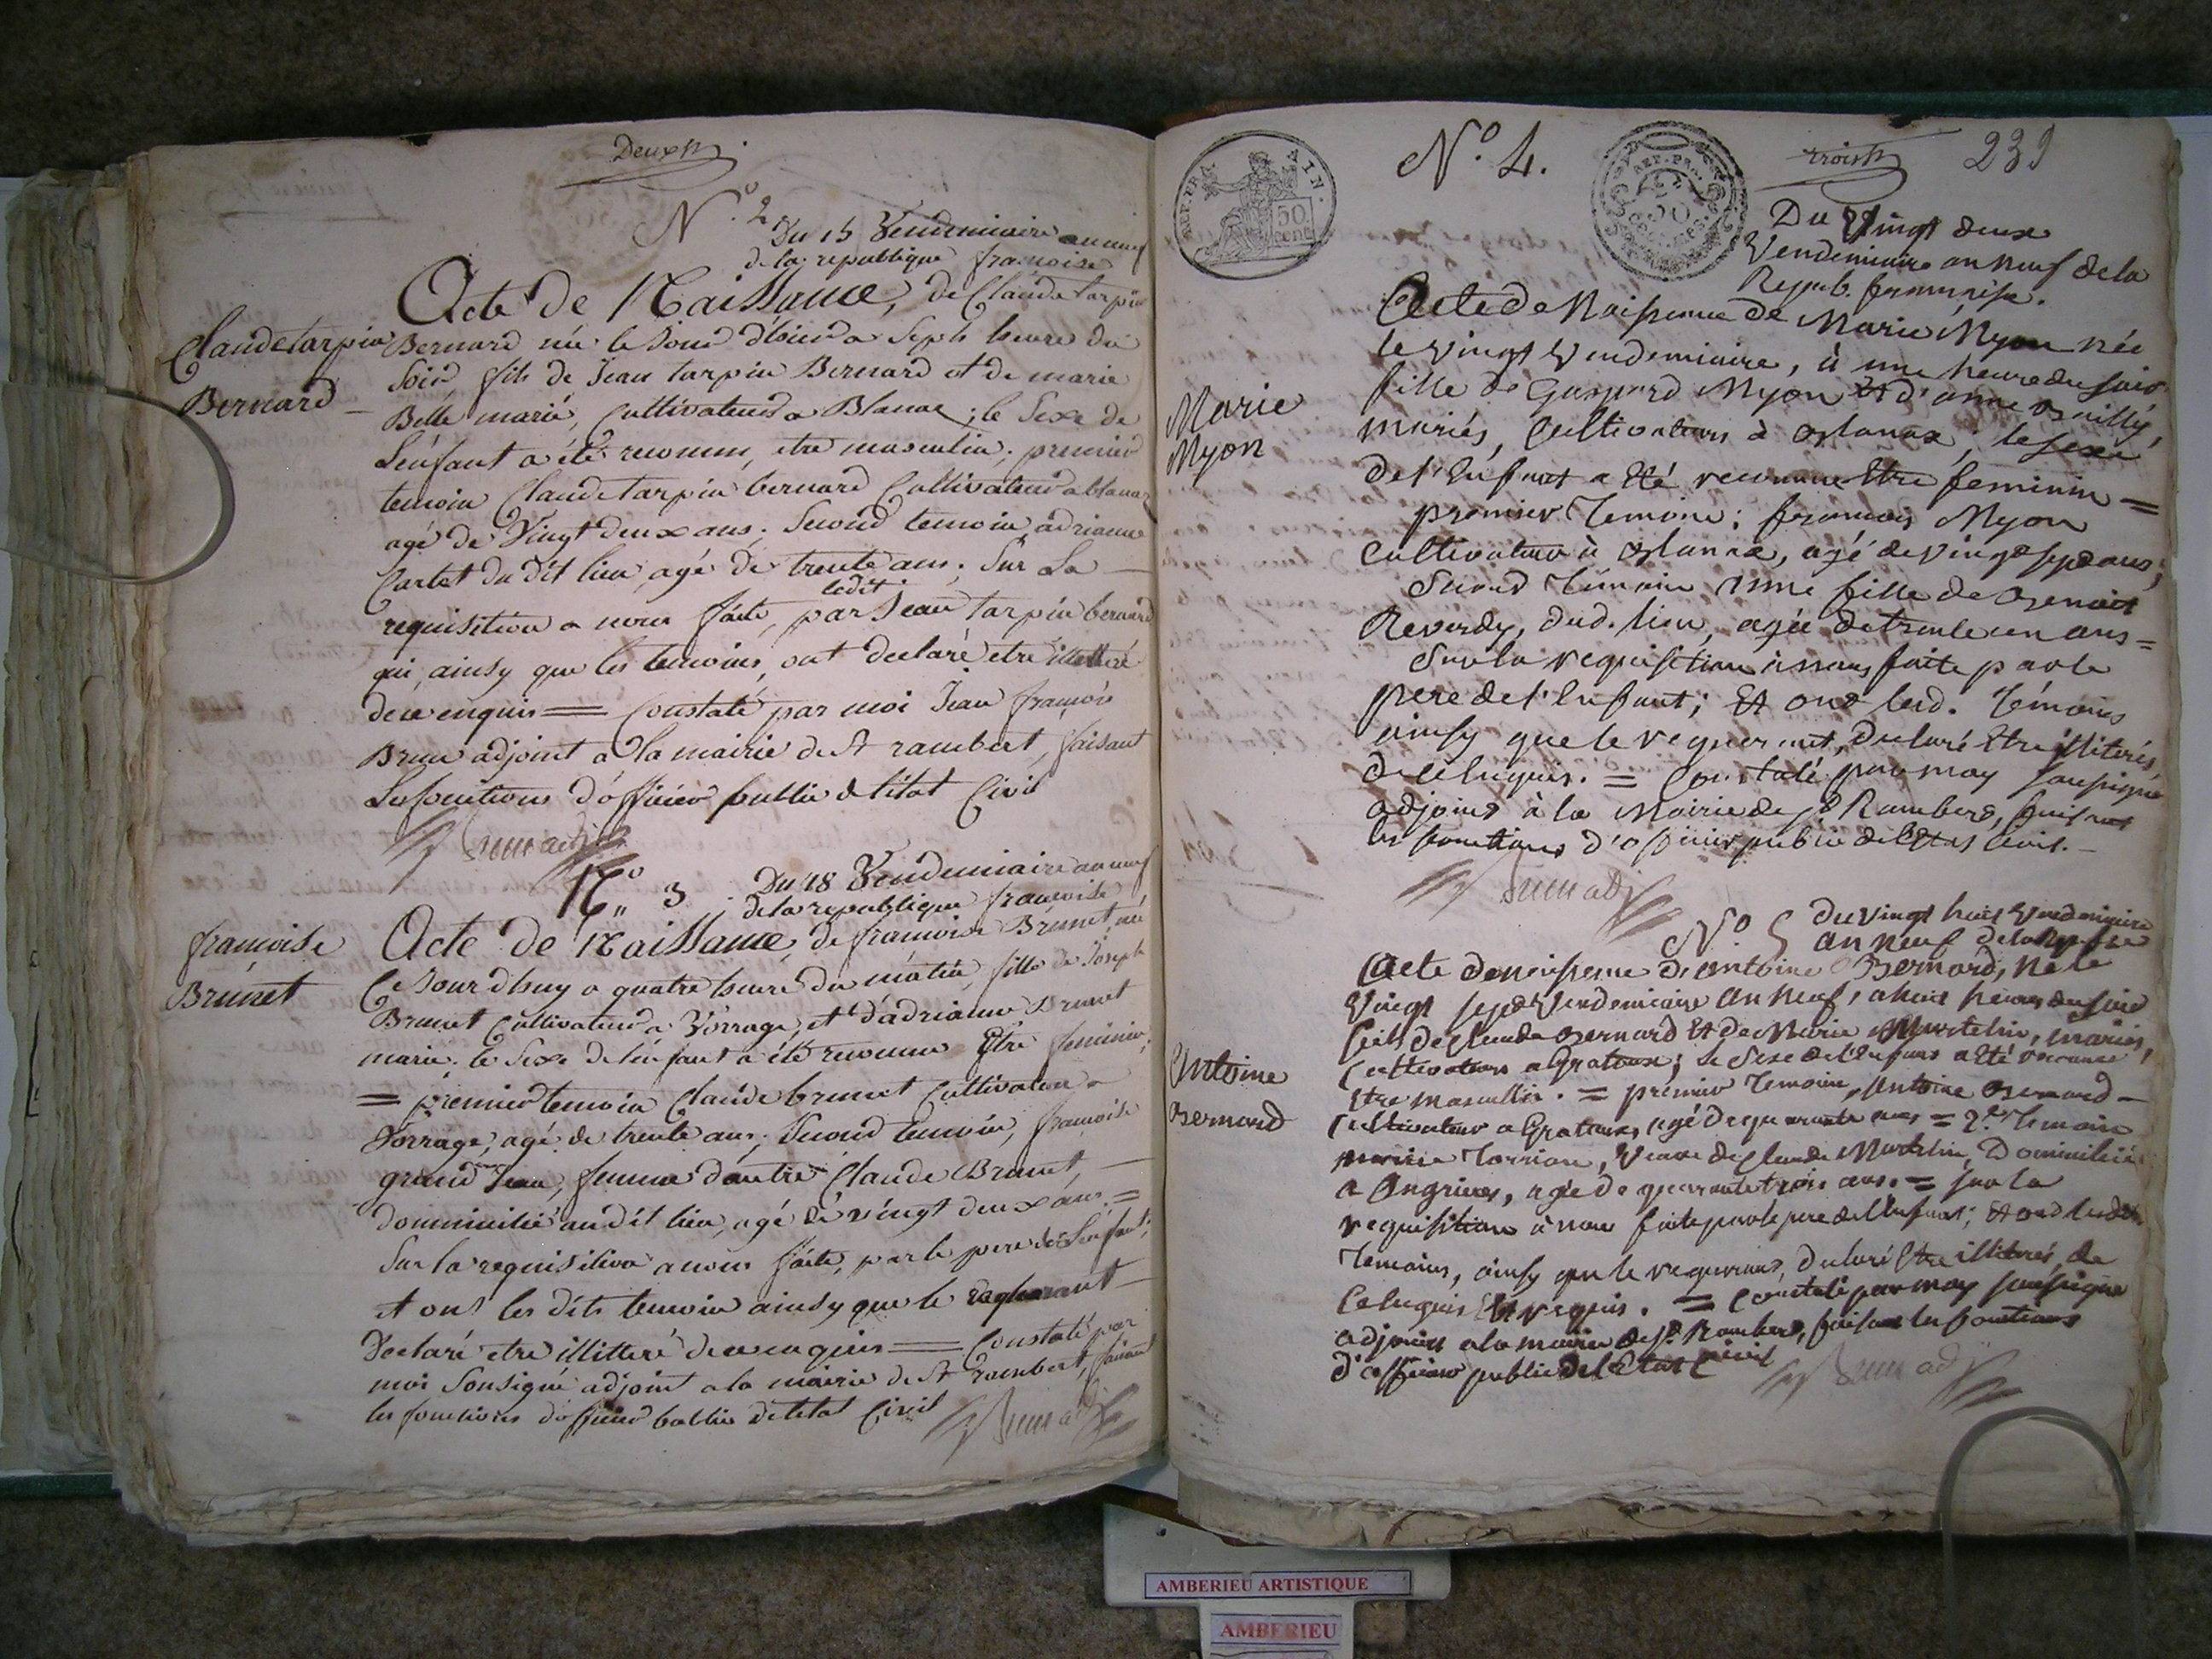 Deux
N.° 2
Du 15 Vendemiaire an neuf
de la republique francoise
Acte de Naissance, de Claude tarpin
Claude tarpin
Bernard
Bernard née le Jour d'hier a Sept heure du
Soir fils de Jean tarpin Bernard et de marie
Belle marié, Cultivateur a Blanac ; le Sexe de
L'enfant a été reconnu, etre masculin ; premier
temoin Claude tarpin bernard Cultivateur a blanaz
agé de Vingt deux ans ; Second temoin adrianne
Cartet du dit lieu, agé de trente ans ; Sur La
requisition a nous faite, par ledit Jean tarpin bernard
qui, ainsy que les temoins, ont declaré etre illetteré
de ce enquis = Constaté par moi Jean francois
Brun adjoint a la mairie de St rambert, faisant
Les fonctions d'officier public de l'état Civil
Brun adj
N.° 3
Du 18 Vendemiaire an neuf
de la republique francoise
Acte de Naissance, de francoise Brunet, née
francoise
Brunet
Ce Jour dhuy a quatre heure du matin, fille de Joseph
Brunet Cultivateur a Vorrage, et d'adrianne Brunet
marié ; le Sexe de l'enfant a été reconnu Etre feminin ;
= premier temoin Claude brunet Cultivateur a
Vorrage, agé de trente ans ; Second temoin, francoise
grand Jean, femme d'autre Claude Brunet,
dommicilié au dit lieu, agé de vingt deux ans =
Sur la requisition a nous faite, par le pere de L'enfant ;
et ont les dits temoin ainsy que le requerant
Declaré etre illitteré de ce enquis = Constaté par
moi Sousigné adjoint a la mairie de St rambert, faisant
les fonctions d'officier public de l'etat Civil
Brun adj
REP. FRA.
AIN.
50
cent
N.° 4.
REP. FRA.
50
trois
239
Du Vingt deux
Vendemiaire an neuf de la
Repub. francoise.
Acte de Naissance de Marie Myon née
le vingt Vendemiaire, à une heure du soir
Marie
Myon
fille de Gaspard Myon Et d'anne
mariés, Cultivateurs à Blanaz ; le sexe
de l'Enfant a Eté reconnu Etre feminin =
premier Temoin ; francois Myon
Cultivateur à Blanaz, agé de vingt sept ans ;
Second Témoin anne fille de Benoit
Reverdy, dud. lieu, agée de trente un ans =
Sur la requisition à nous faite par le
pere de l'Enfant ; Et ont lesd. Témoins
ainsy que le requerant, declaré Etre illiterés
de ce Enquis. = Constaté par moy sousigné
adjoint à la Mairie de St Rambert, faisant
les fonctions d'officier public de l'Etat Civil.
Brun adj
N.° 5
du vingt huit Vendemiaire
an neuf de la Rep.
Acte de naissance d'antoine Bernard, né le
Vingt sept Vendemiaire an neuf, a huit heures du soir
fils de Claude Bernard Et de Marie Martelin, mariés,
Antoine
Bernard
Cultivateurs a Grattoux ; le Sexe de l'Enfant a Eté reconnu
Etre masculin. = premier Temoin, antoine Bernard
Cultivateur a Grattoux, agé de quarante ans = 2.e Temoin
marie, Veuve de Claude Martelin, Domiciliée
a Angrieres, agée de quarante trois ans. = sur la
requisition à nous faite par le pere de l'Enfant ; Et ont lesdits
Temoins, ainsy que le requerant, declaré Etre illiterés, de
ce Enquis Et requis. = Constaté par moy sousigné
adjoint a la mairie de St. Rambert, faisant les fonctions
d'officier public de l'Etat Civil
Brun adj
AMBERIEU ARTISTIQUE
AMBERIEU